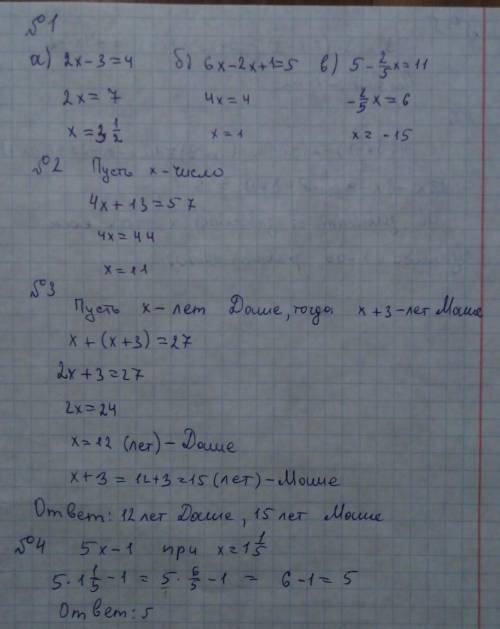 №1
а) 2x-3=4 б) 6x-2x+1=5 в) 5-2/5x=11
2x=7 4x=4 -2/5x=6
x=3 1/2 x=1 x=-15
№2 Пусть x-число
4x+13=57
4x=44
x=11
№3
Пусть x-лет Даше, тогда x+3-лет Маше
x+(x+3)=27
2x+3=27
2x=24
x=12 (лет)-Даше
x+3=12+3=15(лет)-Маше
Ответ: 12 лет Даше, 15 лет Маше
№4 5x-1 при x=1 1/5
5·1 1/5-1=5·6/5-1=6-1=5
Ответ: 5